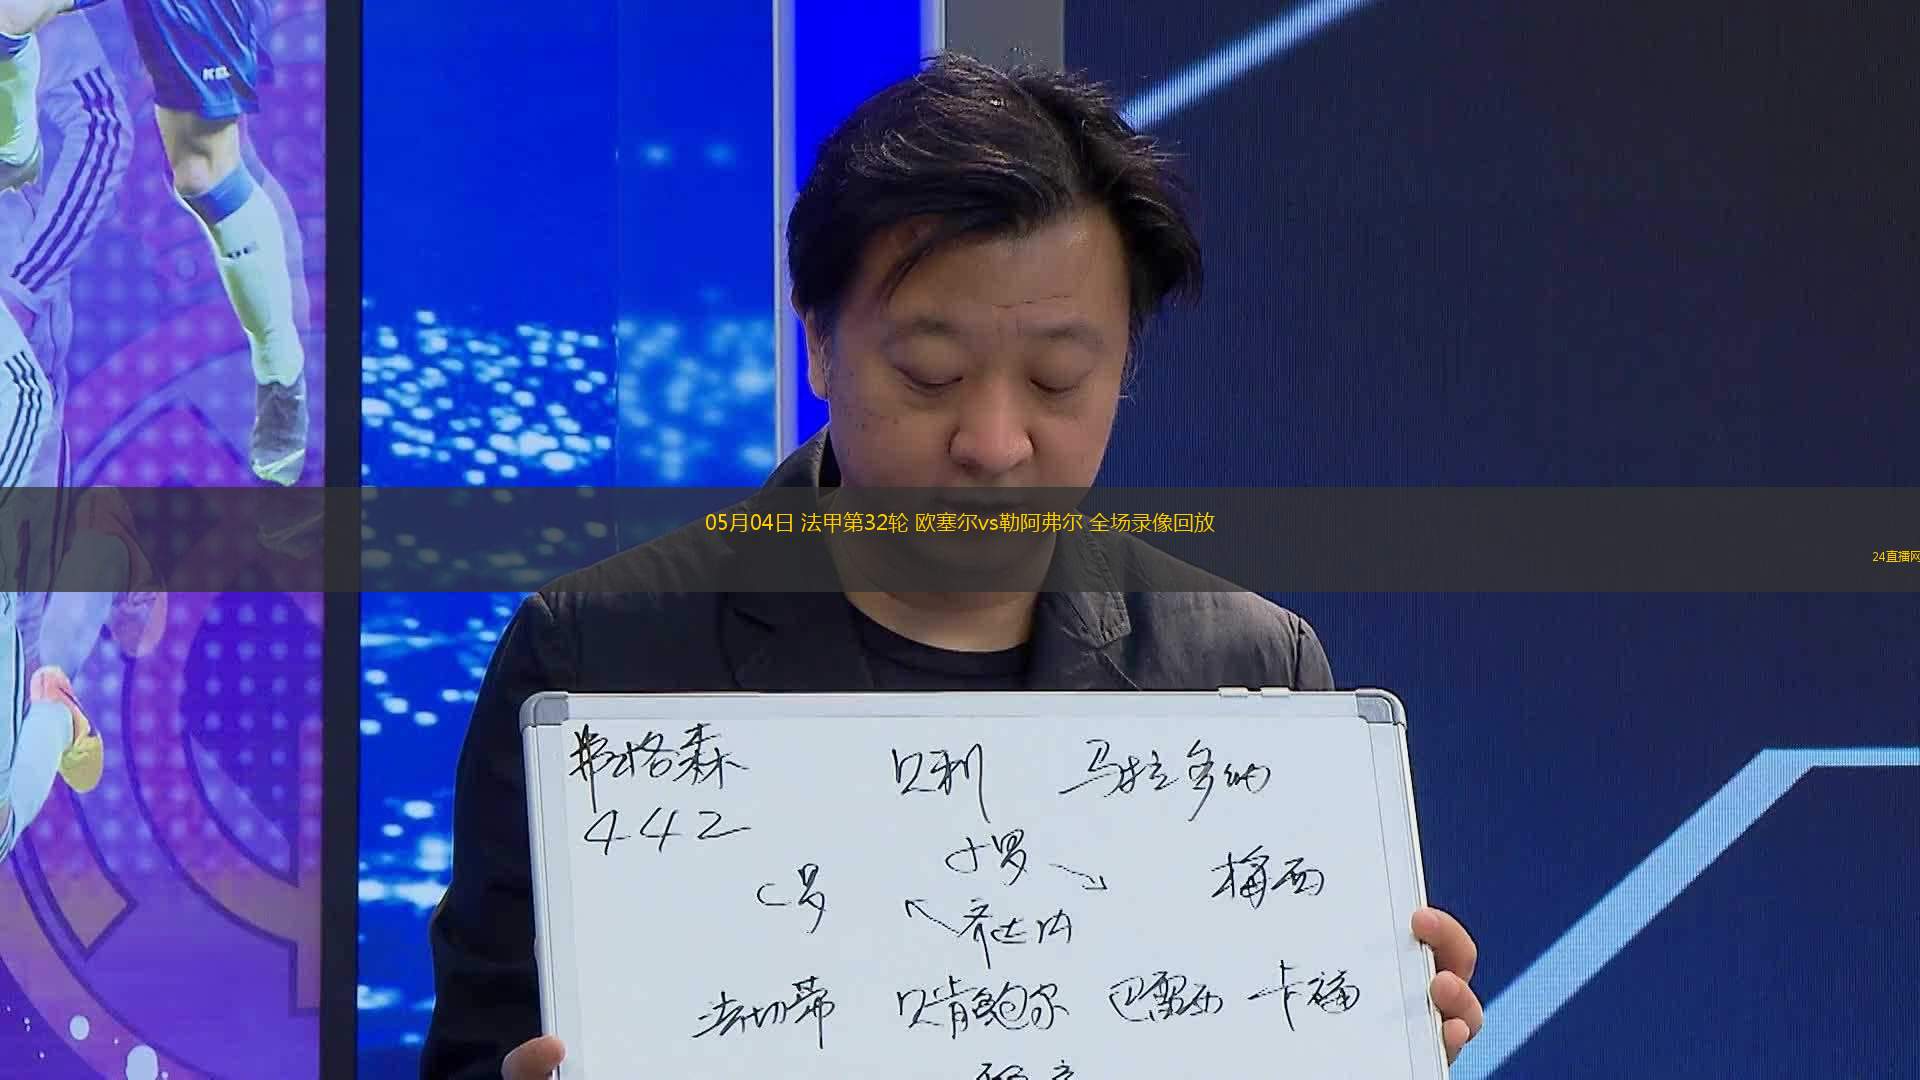 KEL
05月04日 法甲第32轮 欧塞尔vs勒阿弗尔 全场录像回放
24直播网
弗格森 贝利 马拉多纳
442
小罗
C罗 梅西
齐达内
法切蒂 贝肯鲍尔 巴雷西 卡福